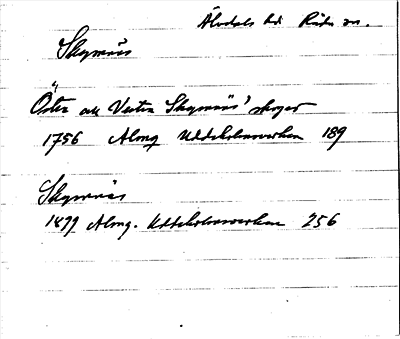 Älvdals hd Råda sn.
Skymnäs
Öster och Vester Skymnäs' skogar
1756 Almq Uddeholmsverken 189
Skymnäs
1899 Almq. Uddeholmsverken 256